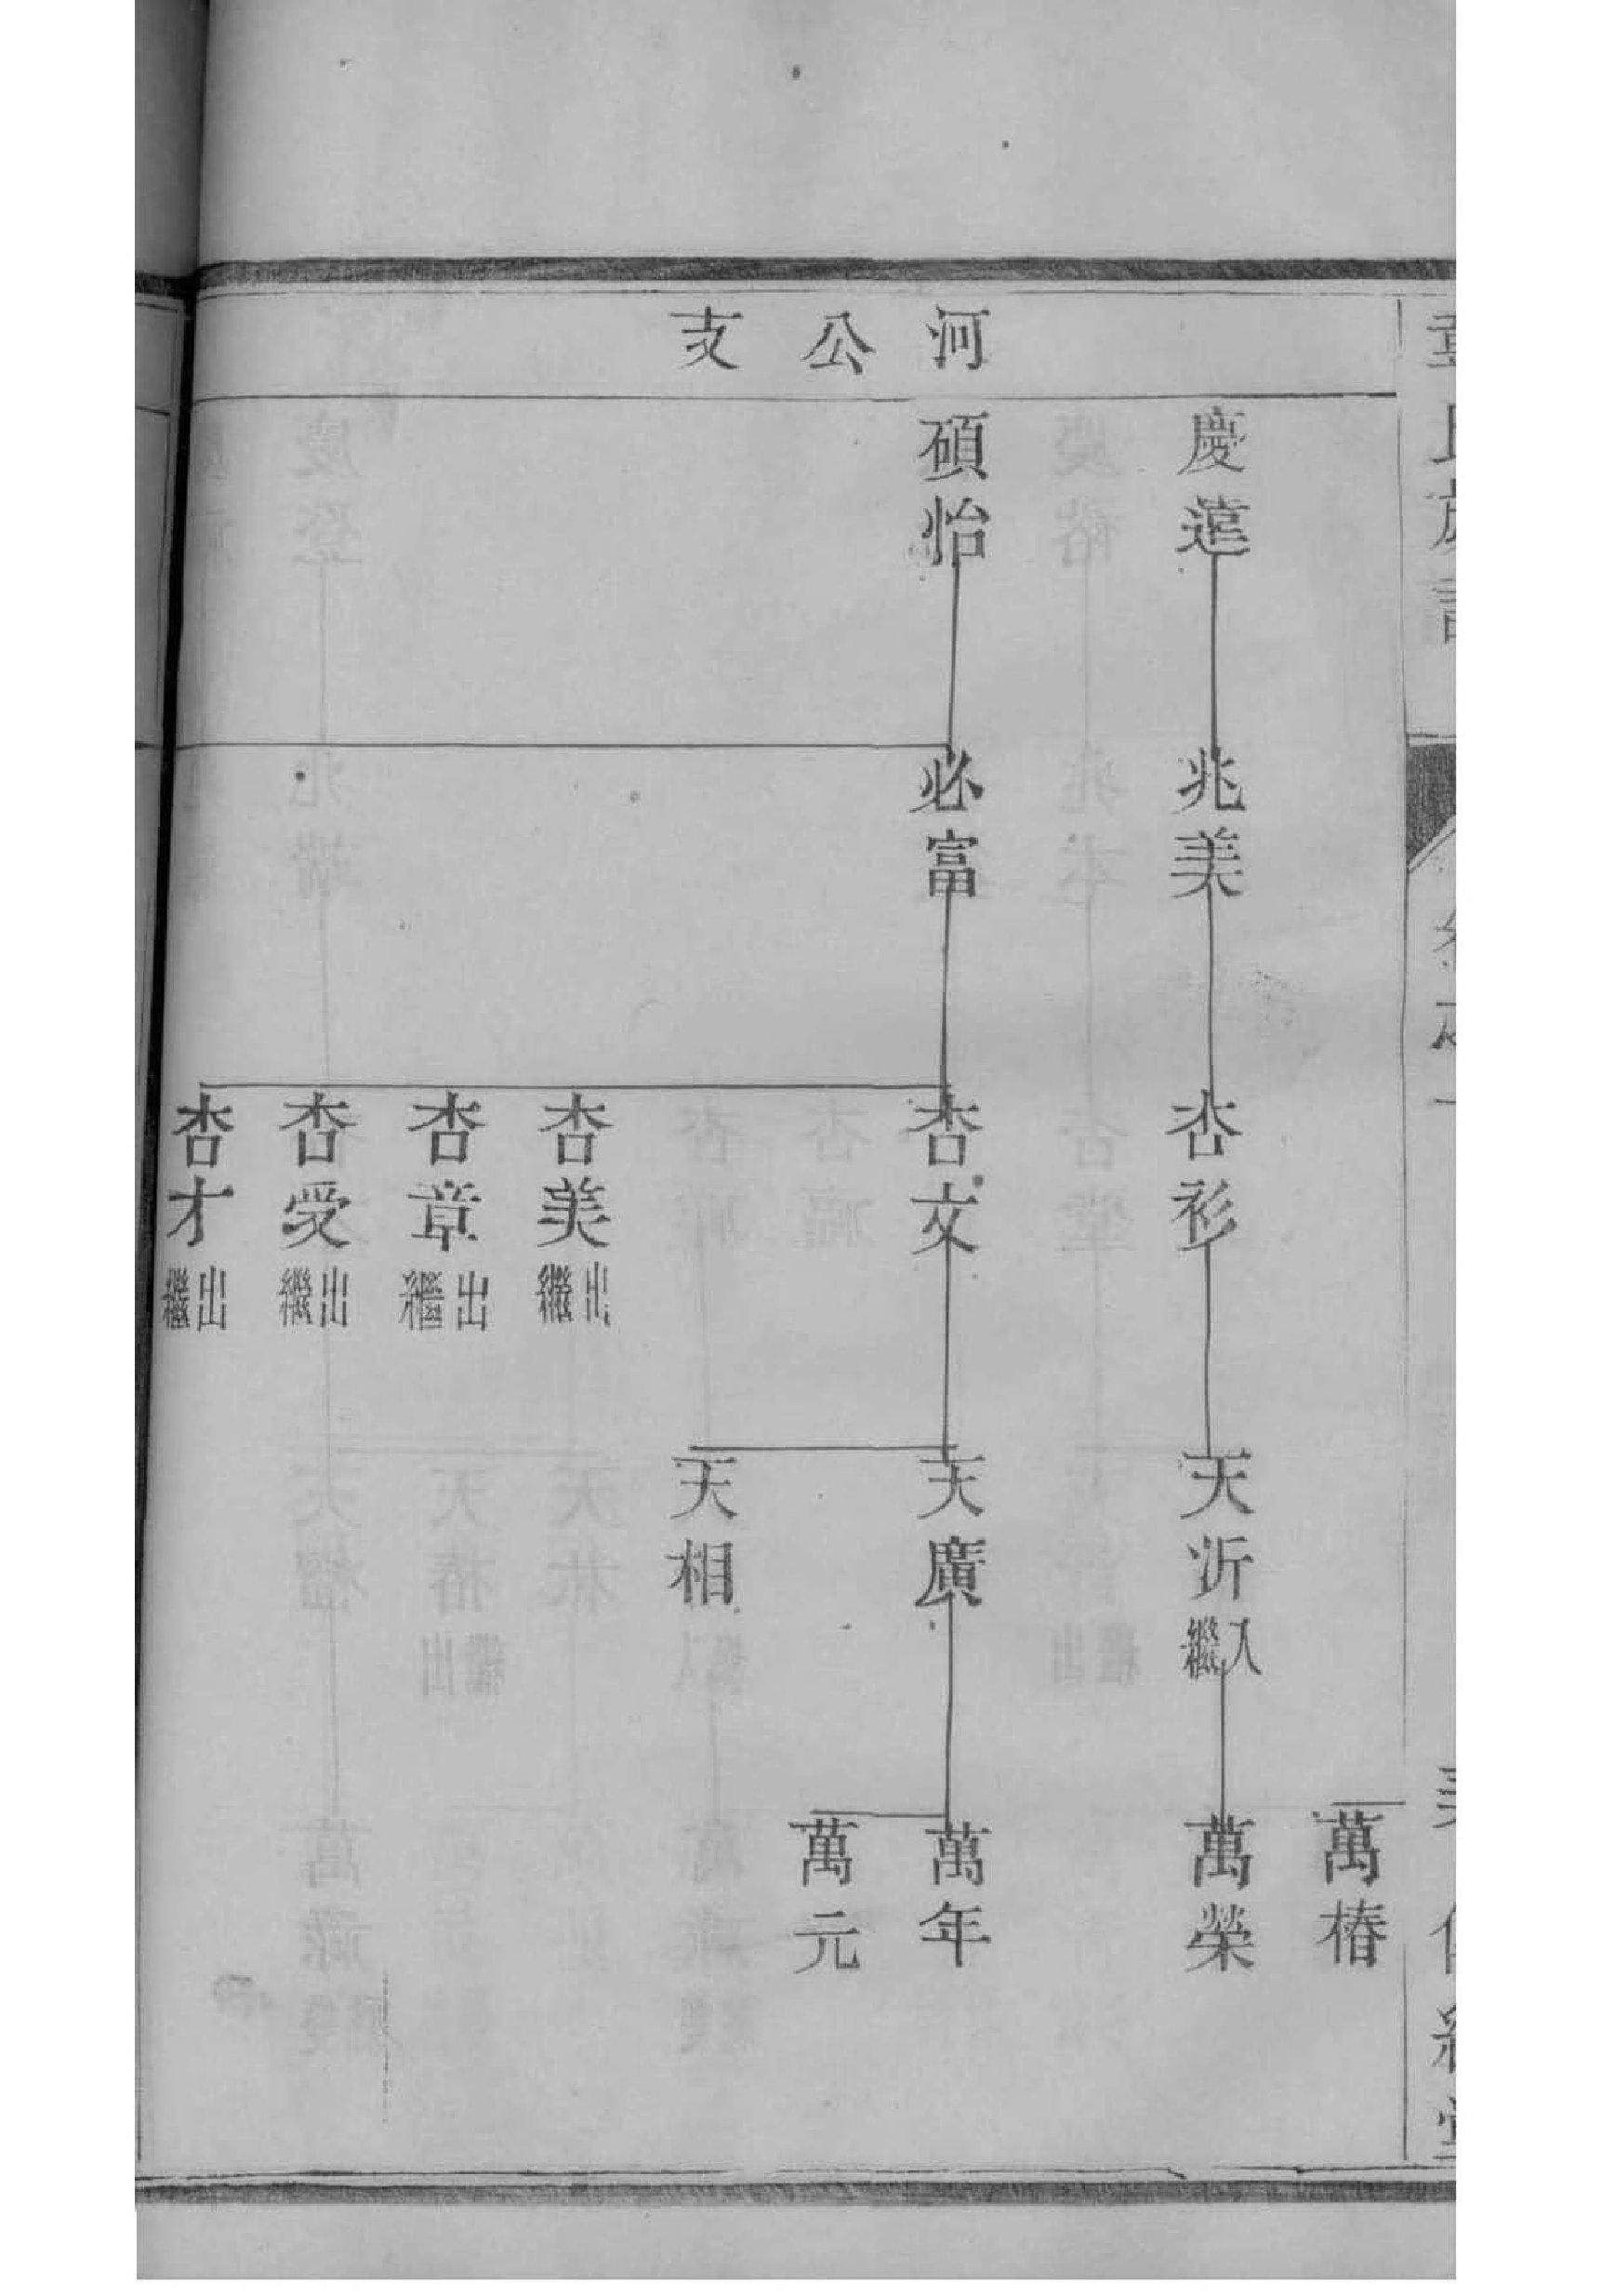 河公支
萬椿
慶遠
兆美
杏衫
天沂 入繼
萬榮
碩怡
必富
杏文
天廣
萬年
萬元
天相
杏美 出繼
杏章 出繼
杏受 出繼
杏才 出繼